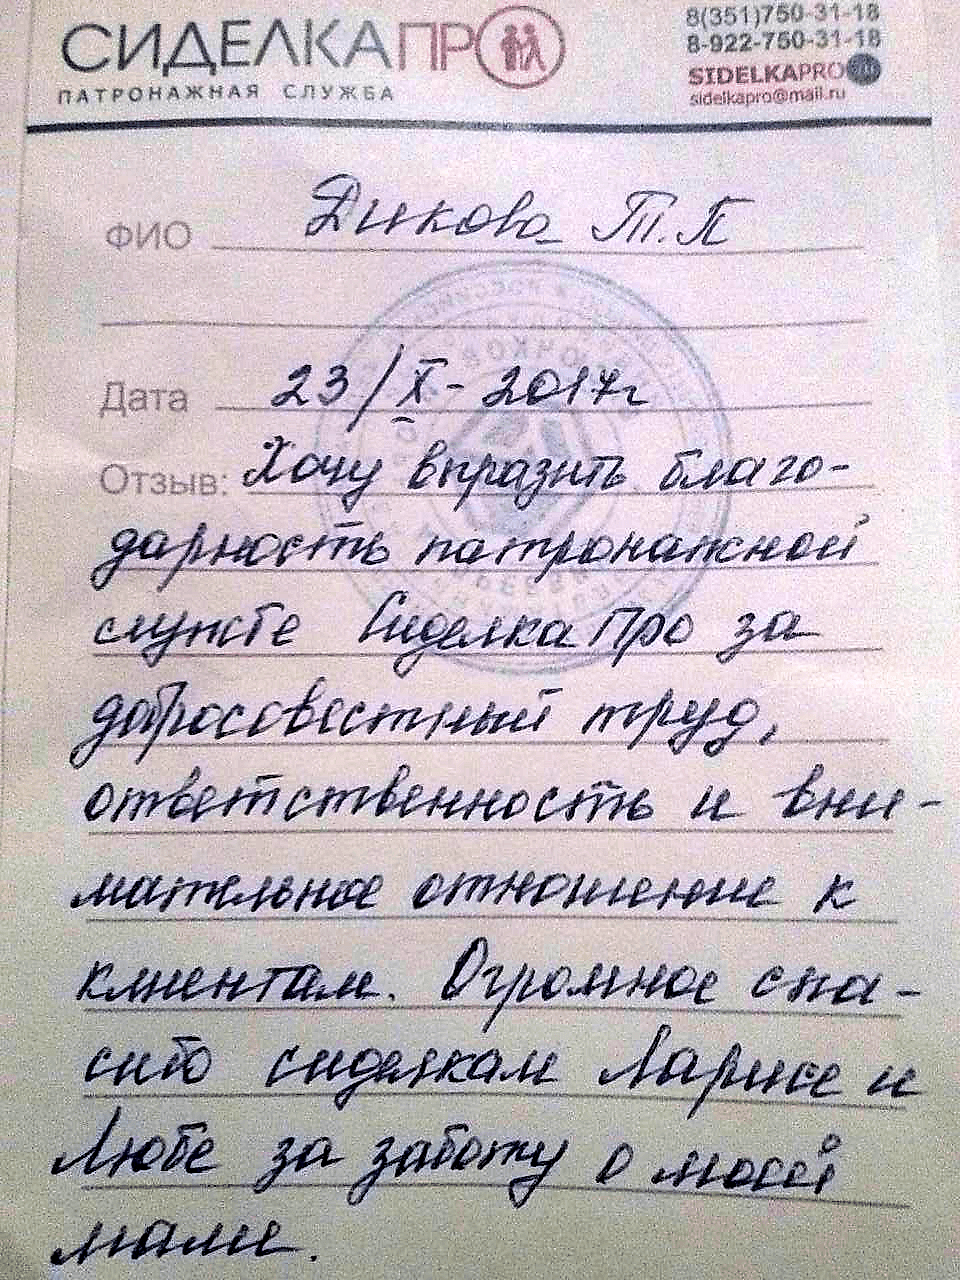 СИДЕЛКАПРО
ПАТРОНАЖНАЯ СЛУЖБА
8(351)750-31-18
8-922-750-31-18
SIDELKAPRO
sidelkapro@mail.ru
ФИО Дикова Т.П
Дата 23/X-2017г
Отзыв: Хочу выразить благо-
дарность патронажной
службе Сиделка Про за
добросовестный труд,
ответственность и вни-
мательное отношение к
клиентам. Огромное спа-
сибо сиделкам Ларисе и
Любе за заботу о моей
маме.